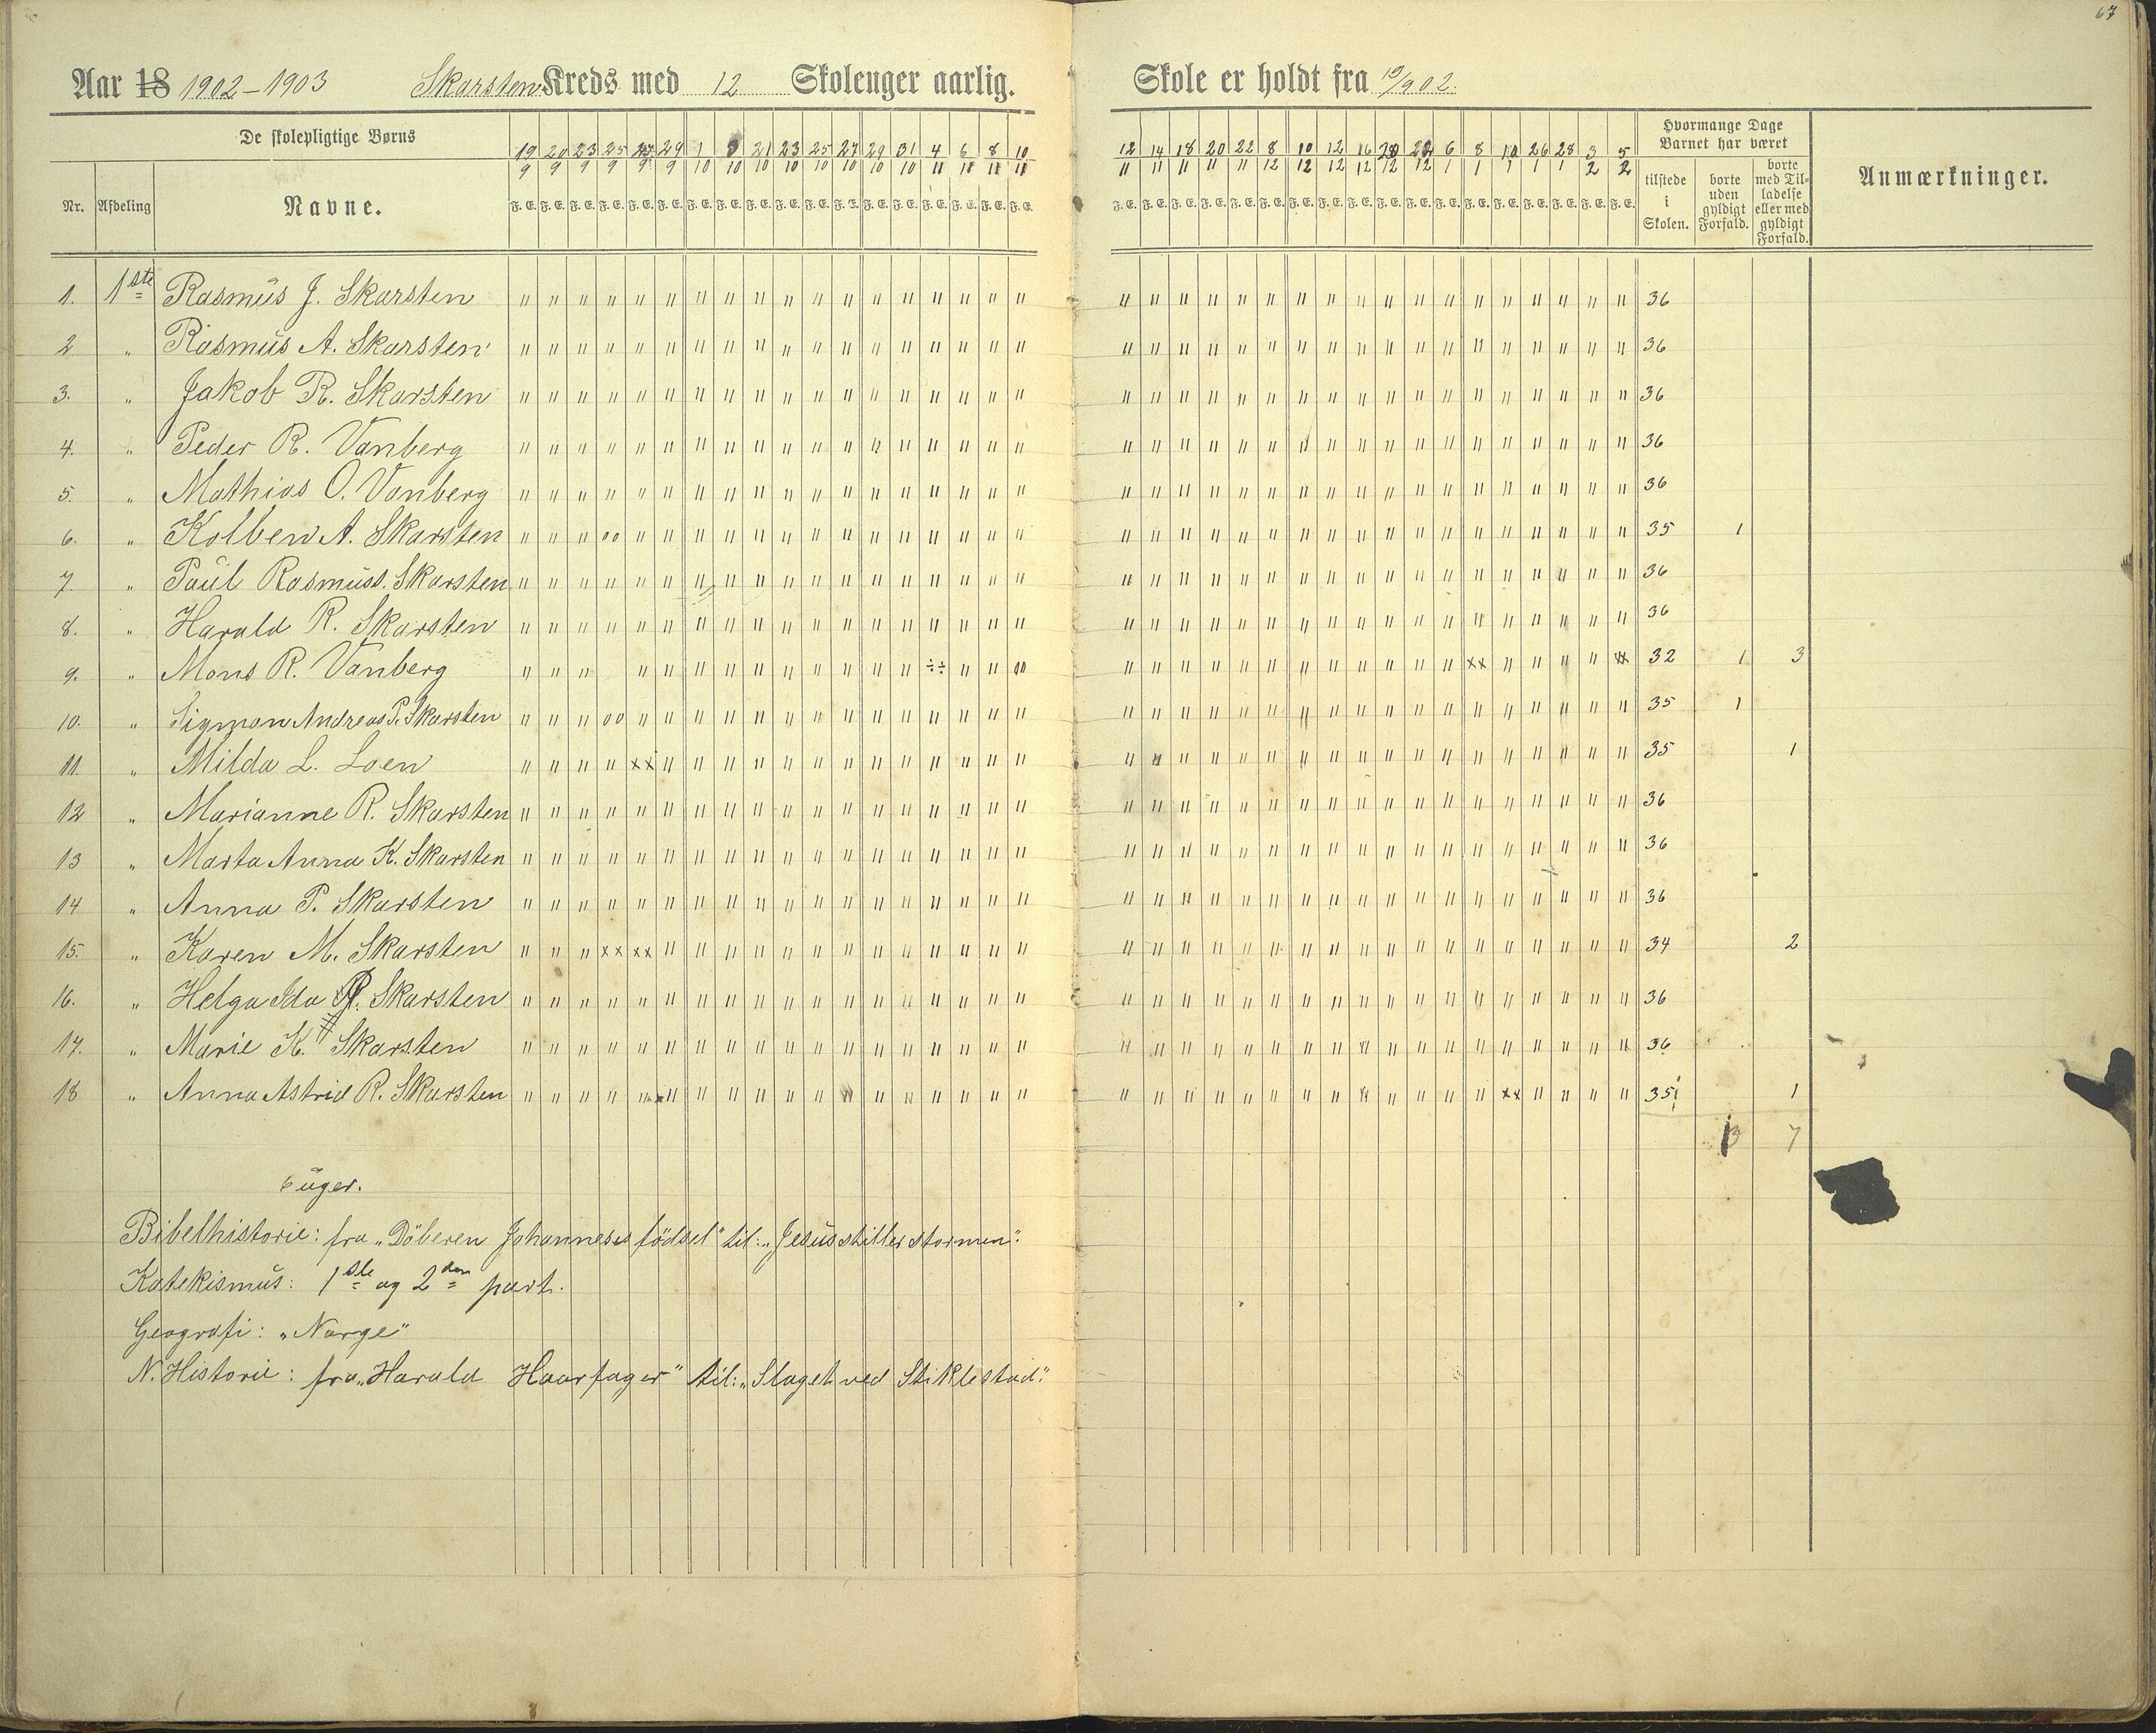 67
Aar 18 1902-1903 Skarsten Kreds med 12 Skoleuger aarlig. Skole er holdt fra 19/9 02.
De skolepligtige Børns
Nr. Afdeling Navne.
19 20 23 25 27 29 1 3 21 23 25 27 29 31 4 6 8 10 12 14 18 20 22 8 10 12 16 20 22 6 8 10 26 28 3 5
9 9 9 9 9 9 10 10 10 10 10 10 10 10 11 11 11 11 11 11 11 11 11 12 12 12 12 12 12 1 1 1 1 1 2 2
F. E. F. E. F. E. F. E. F. E. F. E. F. E. F. E. F. E. F. E. F. E. F. E. F. E. F. E. F. E. F. E. F. E. F. E. F. E. F. E. F. E. F. E. F. E. F. E. F. E. F. E. F. E. F. E. F. E. F. E. F. E. F. E. F. E. F. E. F. E. F. E.
Hvormange Dage Barnet har været
tilstede i Skolen.
borte uden gyldigt Forfald.
borte med Tilladelse eller med gyldigt Forfald.
Anmærkninger.
1. 1ste Rasmus J. Skarsten 36
2 " Rasmus A. Skarsten 36
3. " Jakob R. Skarsten 36
4. " Peder R. Vanberg 36
5. " Mathias O. Vanberg 36
6. " Kolben A. Skarsten oo 35 1
7. " Paul Rasmuss. Skarsten 36
8. " Harald R. Skarsten 36
9. " Mons R. Vanberg ÷÷ xx 32 1 3
10. " Sigmon Andreas P. Skarsten oo 35 1
11. " Milda L. Loen xx 35 1
12 " Marianne R. Skarsten 36
13 " Marta Anna K. Skarsten 36
14 " Anna P. Skarsten 36
15. " Karen M. Skarsten xx xx 34 2
16. " Helga Ida R. Skarsten 36
17. " Marie K. Skarsten 36
18 " Anna Astrid R. Skarsten xx 35 1
3 7
6 uger.
Bibelhistorie: fra "Döberen Johanneses födsel" til: "Jesus stiller stormen".
Katekismus: 1ste og 2den part.
Geografi: "Norge"
N. Historie: fra "Harald Haarfager" til: "Slaget ved Stiklestad".